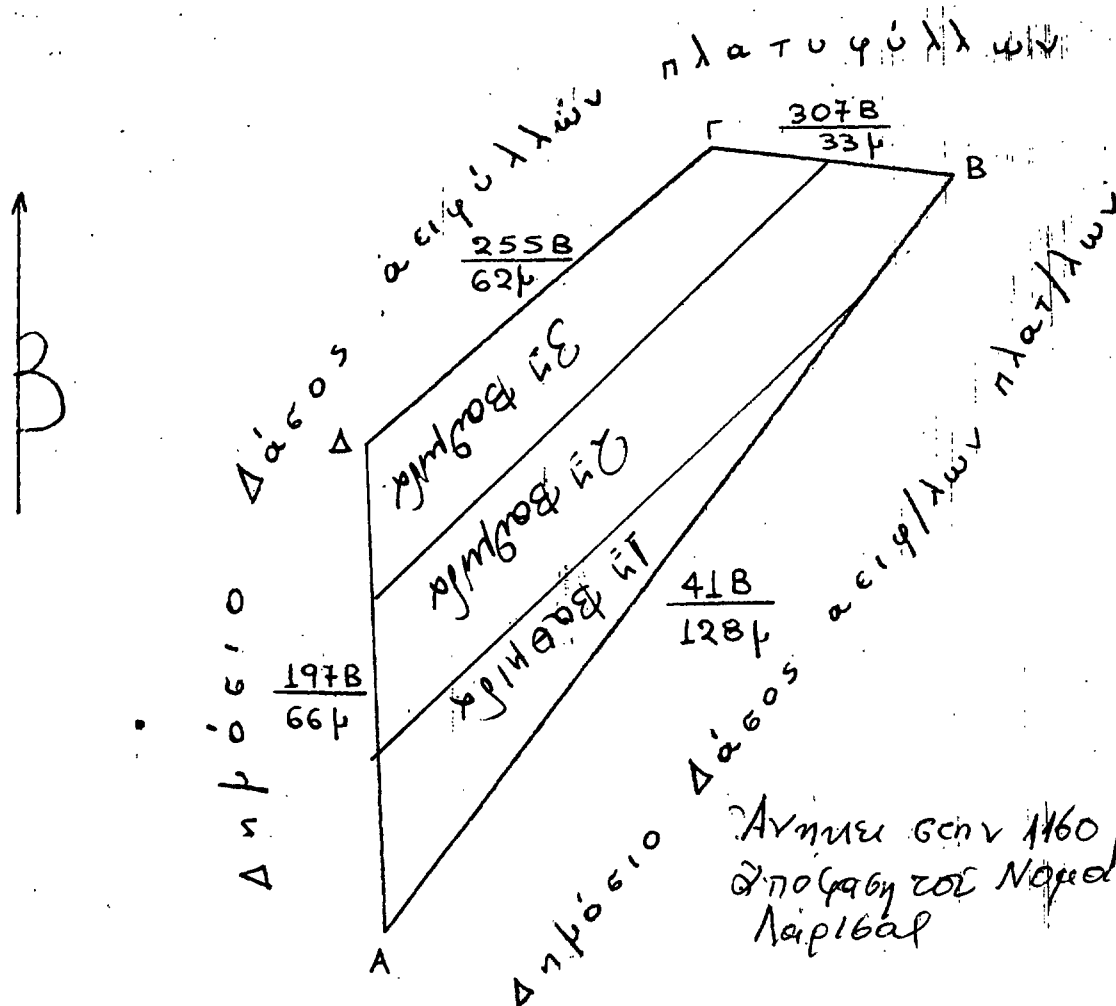 Δημόσιο Δάσος ἀειφύλλων πλατυφύλλων
Γ
307Β
33μ
Β
255Β
62μ
Δ
3η Βαθμίδα
2α Βαθμίδα
1η Βαθμίδα
41Β
128μ
197Β
66μ
Β
Α
Δημόσιο Δάσος αειφ/λων πλατ/λων
Ἀνήκει στην 1160
ἀπόφαση τοῦ